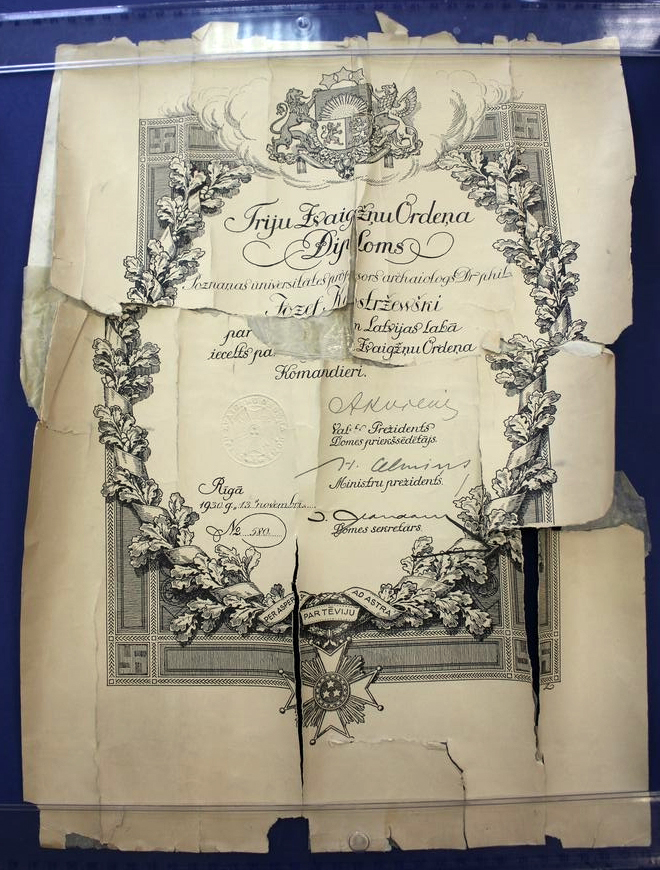 Triju Zvaigžņu Ordeņa
Diploms
Poznaņas universitātes profesors archaiologs Dr phil.
Jozef Kostrževśki
par n Latvijas labā
iecelts pa Zvaigžņu Ordeņa
Komandieri.
Valsts Prezidents
Domes priekšsēdētājs.
Ministru prezidents.
Rīgā
1930 g. 13. novembrī
Domes sekretārs.
No 580
PER ASPERA
PAR TĒVIJU
AD ASTRA